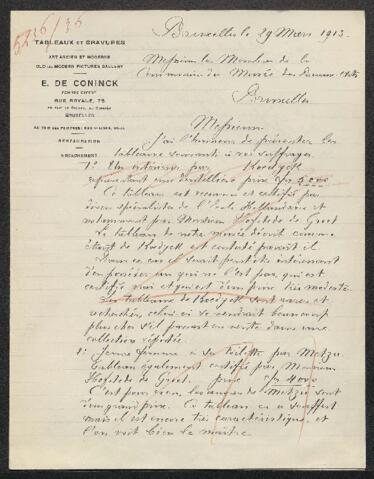 5826/36
Bruxelles le 29 Mars 1913.
TABLEAUX ET GRAVURES
ART ANCIEN ET MODERNE
OLD AND MODERN PICTURES GALLERY
E. DE CONINCK
PEINTRE EXPERT
RUE ROYALE, 75
BRUXELLES
RESTAURATION
ENCADREMENT
Messieurs les Membres de la
Commission du Musée des Beaux Arts
Bruxelles
Messieurs
J'ai l'honneur de présenter les
tableaux suivants à vos suffrages.
1° Un intérieur, par Koedyck
représentant une dentellière prix frs
Ce tableau est reconnu et certifié par
divers spécialistes de l'Ecole Hollandaise et
notamment par Monsieur Hofstede de Groot.
Le tableau de votre musée décrit comme
étant de Koedyck est contesté paraît il
Dans ce cas il serait peut être intéressant
d'en posséder un qui ne l'est pas, qui est
certifié vrai et qui est d'un prix très modeste.
Les tableaux de Koedyck sont rares et
recherchés, celui-ci se vendrait beaucoup
plus cher s'il passait en vente dans une
collection réputée.
Jeune femme à sa toilette par Metzu
tableau également certifié par Monsieur
Hofstede de Groot. prix frs 4000
C'est pour rien, les œuvres de Metzu sont
d'un grand prix. Ce tableau a souffert
mais il est encore très caractéristique, et
l'on voit bien le maître